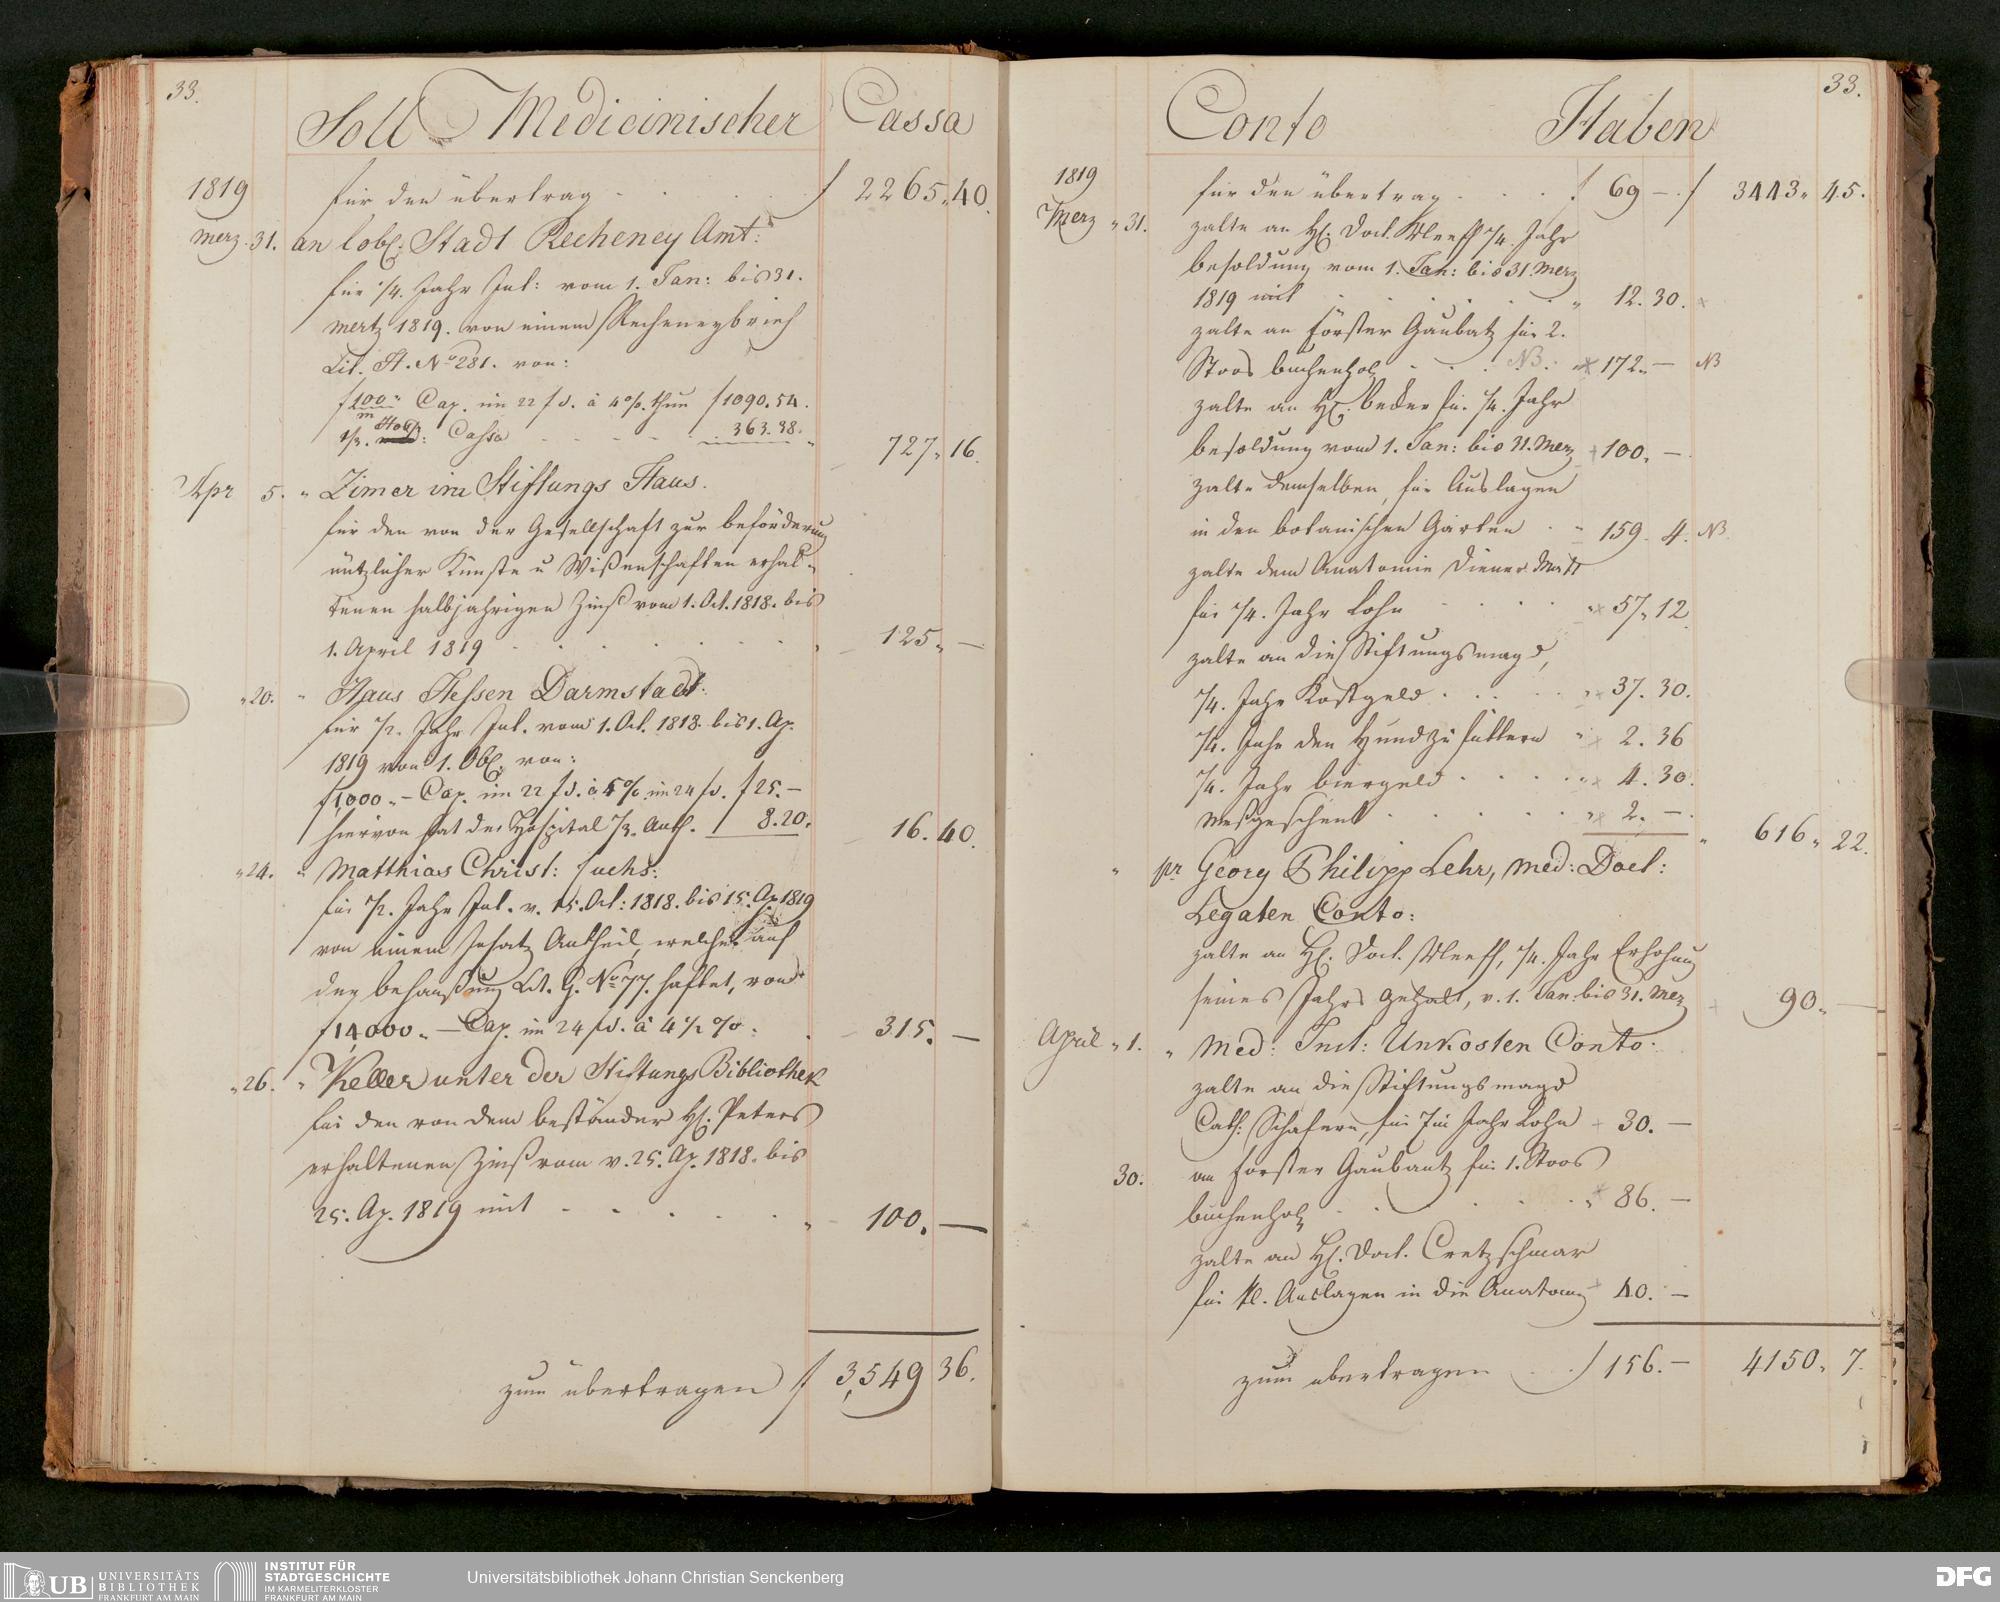 33.
Soll Medicinischer Cassa
1819 für den übertrag . . . f 2265.40.
Merz. 31. an lobl. Stadt Recheney Amt:
für 1/4. Jahr Int: vom 1. Jan: bis 31.
Mertz 1819. von einem Recheneybrief
Lit. H. No 281. von:
Cap. im 22 f d. à 4 %. thun f 1090.54.
1/3. Cassa . . . 363.38. 727.16.
Apr 5. " Zimer im Stiftungs Haus.
für den von der Gesellschaft zur beförderung
nützlicher Künste u Wißenschaften erhal-
tenen halbjahrigen Zinß vom 1. Oct. 1818. bis
1. April 1819 . . . 125. —
" 20. " Haus Hessen Darmstadt:
für 1/2. Jahr Int. vom 1. Oct. 1818. bis 1. Ap.
1819 von 1. Obl. von:
f 1,000. — Cap. im 22 f d. à 5 % im 24 f d. f 25. —
hiervon hat der Hospital 1/3. Anth. 8.20. 16.40.
" 24. " Matthias Christ: Fuchs:
für 1/2. Jahr Int. v. 15. Oct: 1818. bis 15. Ap 1819
von einem Insatz Antheil, welcher auf
der behaußung Lit. G. No 77. haftet, von
f 14,000. — Cap. im 24 f d. à 4 1/2 %. . 315. —
" 26. " Keller unter der Stiftungs Bibliothek
für den von dem beständer H. Peters
erhaltenen Zinß vom v. 25. Ap. 1818. bis
25. Ap. 1819 mit . . . 100. —
zum übertragen f 3,549 36.
33.
Conto Haben
1819 für den übertrag . . . f 69 — . f 3443. 45.
Merz " 31. zalte an H. Doct. Neeff 1/4. Jahr
besoldung vom 1. Jan: bis 31. Merz
1819 mit . . . " 12.30.
zalte an Förster Gaubatz für 2.
Stoos buchenholz . . . NB. 172. — NB
zalte an H. Becker für 1/4. Jahr
besoldung vom 1. Jan: bis 31. Merz 100. —
zalte demselben, für Auslagen
in den botanischen Garten . . 159. 4. NB.
zalte dem Anatomie Diener
für 1/4. Jahr Lohn . . . 57.12
zalte an die Stiftungsmagd,
1/4. Jahr Kostgeld . . . 37.30.
1/4. Jahr den Hund zu futtern " 2.36
1/4. Jahr biergeld . . . 4.30.
Meßgeschenk . . . 2. — . " 616. 22.
" pr Georg Philipp Lehr, Med: Doct:
Legaten Conto:
zalte an H. Doct. Neeff, 1/4. Jahr Erhohung
seines Jahrs Gehalt, v. 1. Jan. bis 31. Merz 90. —
April " 1. " Med: Inst: Unkosten Conto.
zalte an die Stiftungsmagd
Cath: Schafern, für Jahr Lohn 30. —
30. an Forster Gaubautz für 1. Stoos
buchenholz . . . " 86. —
zalte an H. Doct. Cretzschmar
für kl. Auslagen in die Anatomy 40. —
zum übertragen . . f 156. — 4150. 7.
UB UNIVERSITÄTS
BIBLIOTHEK
FRANKFURT AM MAIN
INSTITUT FÜR
STADTGESCHICHTE
IM KARMELITERKLOSTER
FRANKFURT AM MAIN
Universitätsbibliothek Johann Christian Senckenberg
DFG